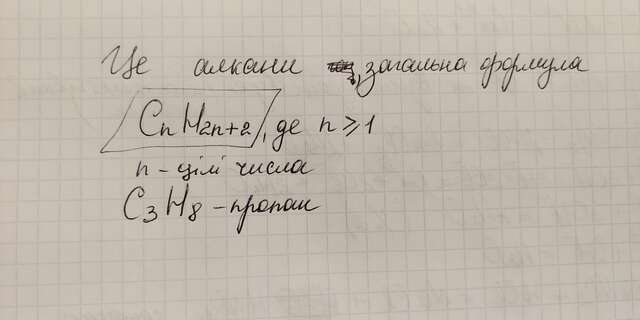 Це алкани, загальна формула
CnH2n+2, де n ⩾ 1
n - цілі числа
C3H8 - пропан